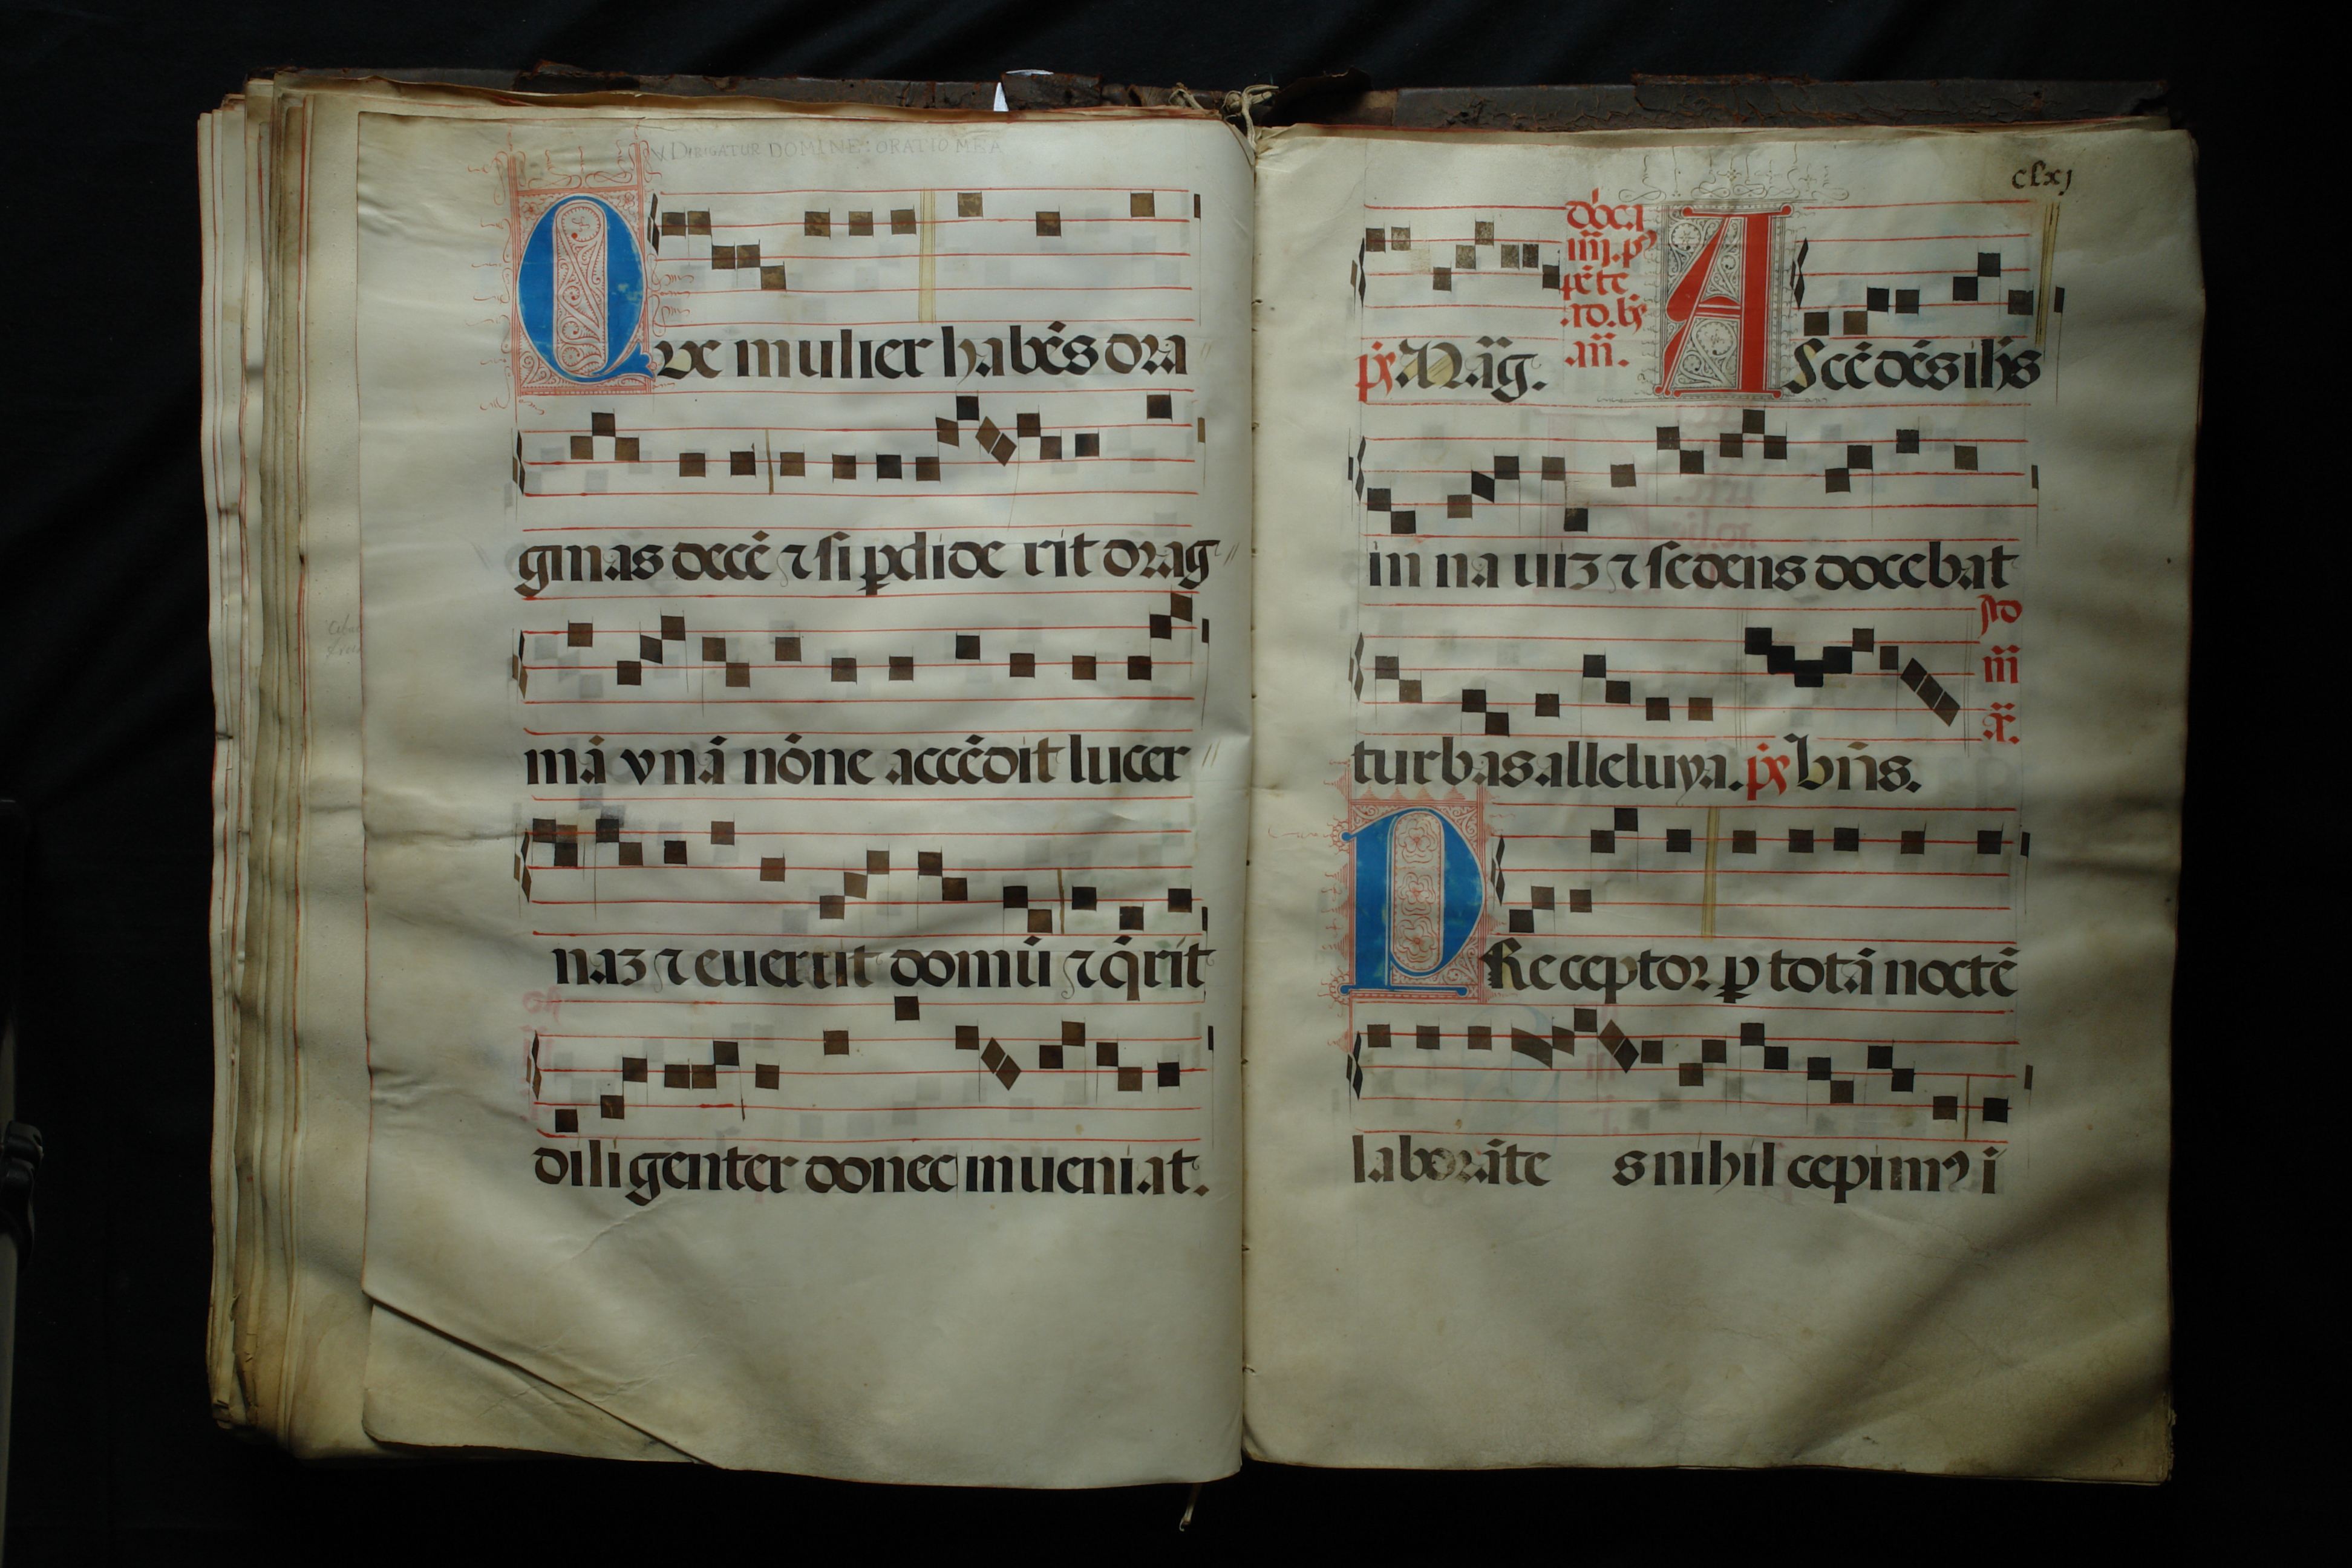 V. DIRIGATUR DOMINE: ORATIO MEA
Que mulier habēs dra
gmas decē ⁊ si ꝑdide rit drag
mā vnā nōne accēdit lucer
naʒ ⁊ euerrit domū ⁊ q̄rit
diligēnter donec inueniat.
clxj
pͯ Māg.
dōc.i
iiij.pꝰ
pēte
.ro.bꝰ
.añ.
AScēdēs ihs
in na uiʒ ⁊ sedens docebat
turbas alleluya. pͯ bn̄s.
Ad
iii
PReceptor ꝑ totā noctē
laborāte s nihil cepimꝰ i